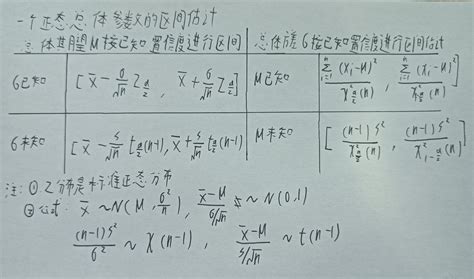 一个正态总体参数的区间估计
总体期望M按已知置信度进行区间 总体方差б按已知置信度进行区间估计
б已知 [x̄ - б/√n Z_{a/2}, x̄ + б/√n Z_{a/2}] M已知 [∑_{i=1}^{n}(X_i-M)²/χ²_{a/2}(n), ∑_{i=1}^{n}(X_i-M)²/χ²_{a/2}(n)]
б未知 [x̄ - s/√n t_{a/2}(n-1), x̄ + s/√n t_{a/2}(n-1)] M未知 [(n-1)s²/χ²_{a/2}(n), (n-1)s²/χ²_{1-a/2}(n)]
注: ① Z分布是标准正态分布
② 公式: x̄ ~ N(M, б²/n), (x̄-M)/(б/√n) ~ N(0,1)
(n-1)s²/б² ~ χ(n-1), (x̄-M)/(s/√n) ~ t(n-1)